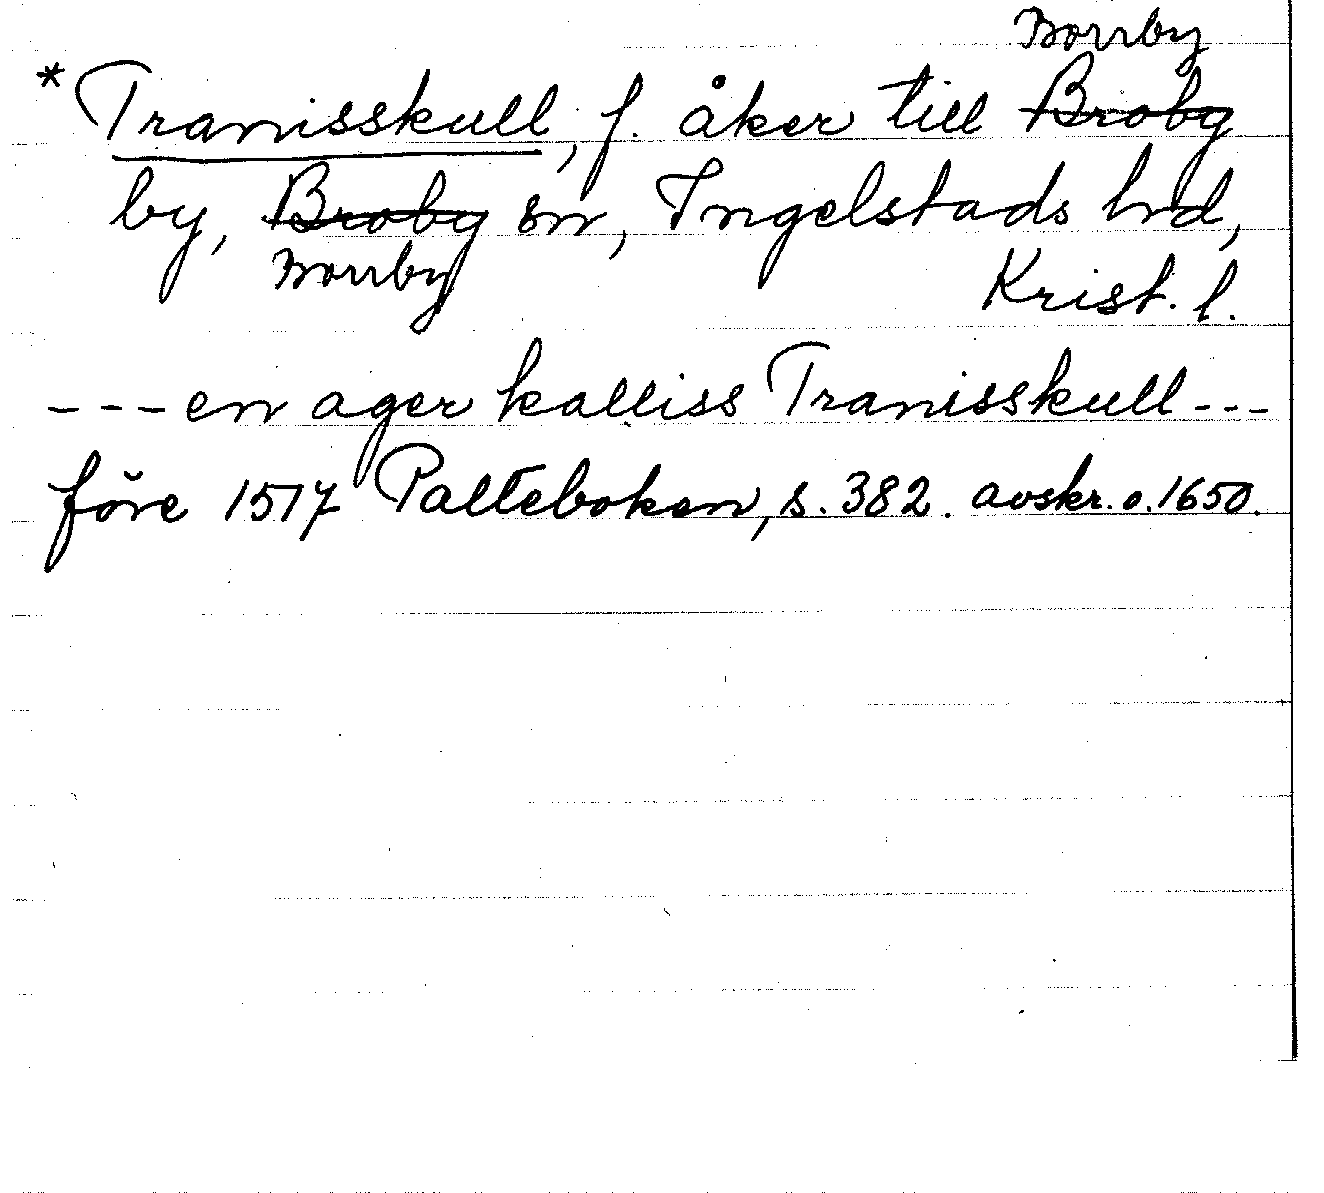 Borrby
*Tranisskull, f. åker till Broby
by, Broby sn, Ingelstads hd,
Borrby
Krist. l.
---en ager kalliss Tranisskull---
före 1517 Palteboken, s. 382. avskr. o. 1650.